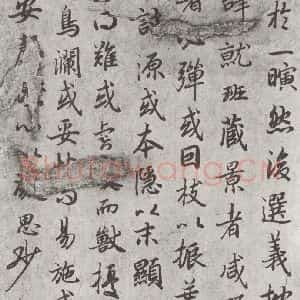 於一瞬然後選義按
辭就班藏景者咸
者必彈或因枝以振葉
討源或本隱以末顯
得難或虎變而獸擾
鳥瀾或妥帖而易施或
安 以 思眇
Shufawang.CN